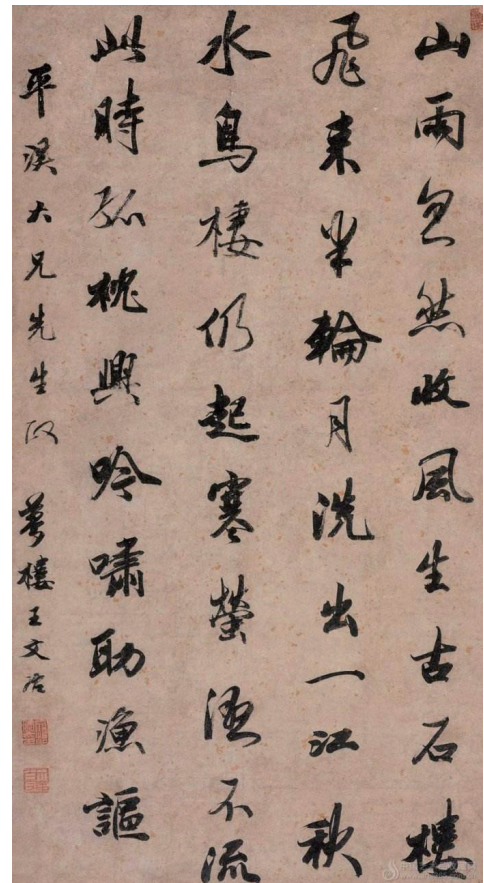 山雨忽然收風生古石樓
飛来半輪月洗出一江秋
水鳥棲仍起寒螢濕不流
此時孤枕興吟嘯助漁謳
平溪大兄先生政 夢樓王文治